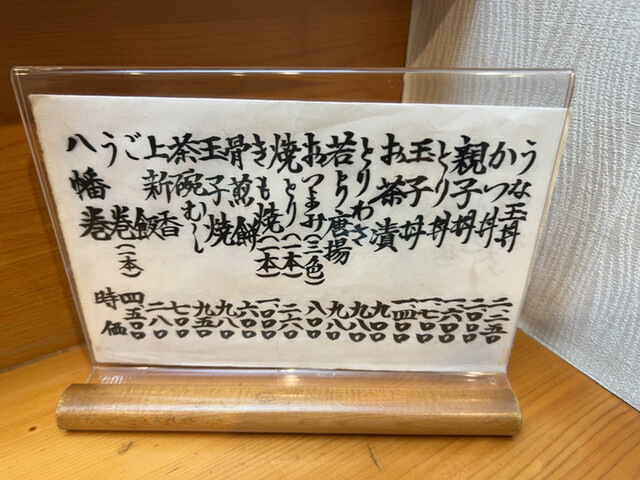 うな玉丼 二、二五〇
かつ丼
親子丼 一、六〇〇
とり丼 一、七〇〇
玉子丼 一、四〇〇
お茶漬 九〇〇
とりわさ 九八〇
若とり唐揚 九八〇
おつまみ(三色) 八〇〇
焼とり(一本) 二六〇
きも焼(一本)
骨煎餅 六〇〇
玉子焼 九八〇
茶碗むし 九五〇
上新香 七〇〇
ご飯 二八〇
う巻(一本) 四、五〇〇
八幡巻 時価